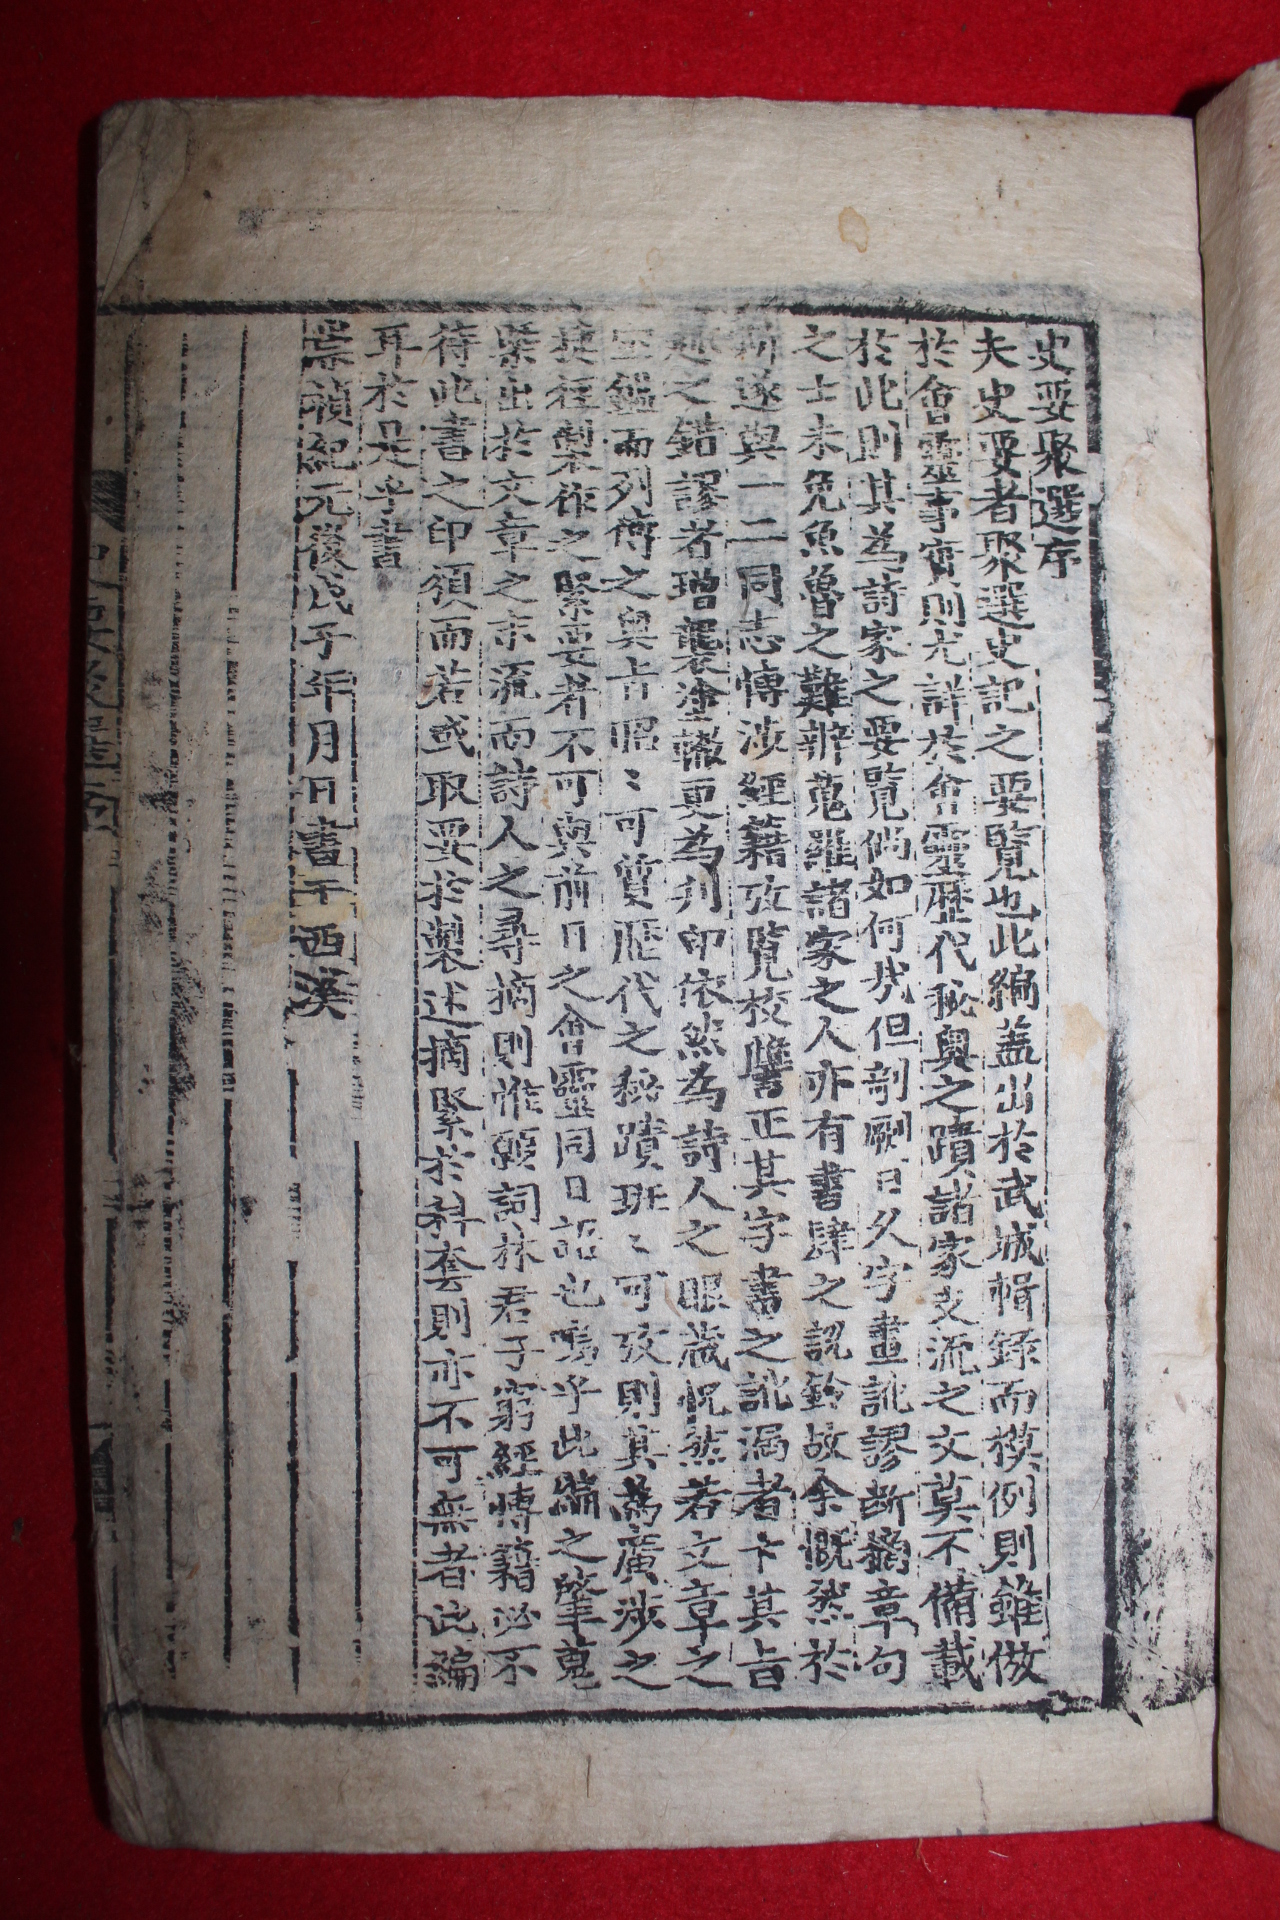 史要聚選序
夫史要者聚選史記之要覽也此編盖出於武城輯錄而模例則雖倣
於會靈事實則尤詳於會靈歷代秘奧之蹟諸家支流之文莫不備載
於此則其為詩家之要覽倘如何㢤但剞劂日久字畫訛謬斷爛章句
之士未免魚魯之難辨蒐羅諸家之人亦有書肆之誤鈴故余慨然於
斯遂與一二同志博涉經籍攷覽校讎正其字書之訛漏者卞其旨
趣之錯謬者增襲塗轍更為刋印依然為詩人之眼藏怳然若文章之
宝鑑而列傳之奧旨昭〻可質歷代之秘蹟班〻可攷則其為廣涉之
捷徑製作之緊要者不可與前日之會靈同日語也嗚乎此編之肇蒐
槩出於文章之末流而詩人之尋摘則惟願詞林君子窮經博籍必不
待此書之印頒而若或取要於製述摘緊於科套則亦不可無者此編
耳於是乎書
崇禎紀元後戊子年月日書于西溪